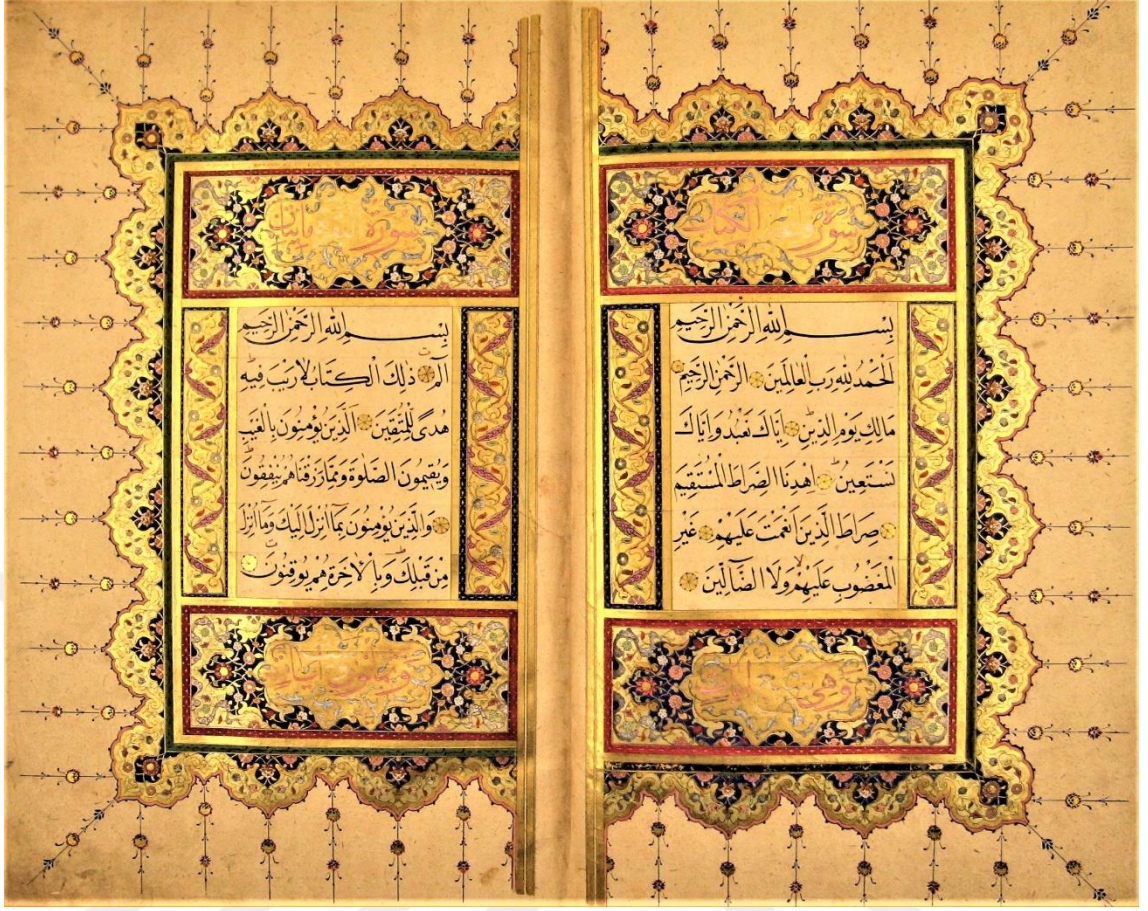 سورة الكتاب
بِسْمِ اللّٰهِ الرَّحْمٰنِ الرَّحِيمِ
اَلْحَمْدُ لِلّٰهِ رَبِّ الْعَالَمِينَ الرَّحْمٰنِ الرَّحِيمِ
مَالِكِ يَوْمِ الدِّينِ اِيَّاكَ نَعْبُدُ وَاِيَّاكَ
نَسْتَعِينُ ط اِهْدِنَا الصِّرَاطَ الْمُسْتَقِيمَ
صِرَاطَ الَّذِينَ اَنْعَمْتَ عَلَيْهِمْ غَيْرِ
الْمَغْضُوبِ عَلَيْهِمْ وَلَا الضَّٓالِّينَ
وهي
سورة مايتان
بِسْمِ اللّٰهِ الرَّحْمٰنِ الرَّحِيمِ
الٓمٓ ذٰلِكَ الْكِتَابُ لَا رَيْبَ فِيهِ
هُدًى لِلْمُتَّقِينَ اَلَّذِينَ يُؤْمِنُونَ بِالْغَيْبِ
وَيُقِيمُونَ الصَّلٰوةَ وَمِمَّا رَزَقْنَاهُمْ يُنْفِقُونَ ط
وَالَّذِينَ يُؤْمِنُونَ بِمَٓا اُنْزِلَ اِلَيْكَ وَمَٓا اُنْزِلَ
مِنْ قَبْلِكَ وَبِالْاٰخِرَةِ هُمْ يُوقِنُونَ ط